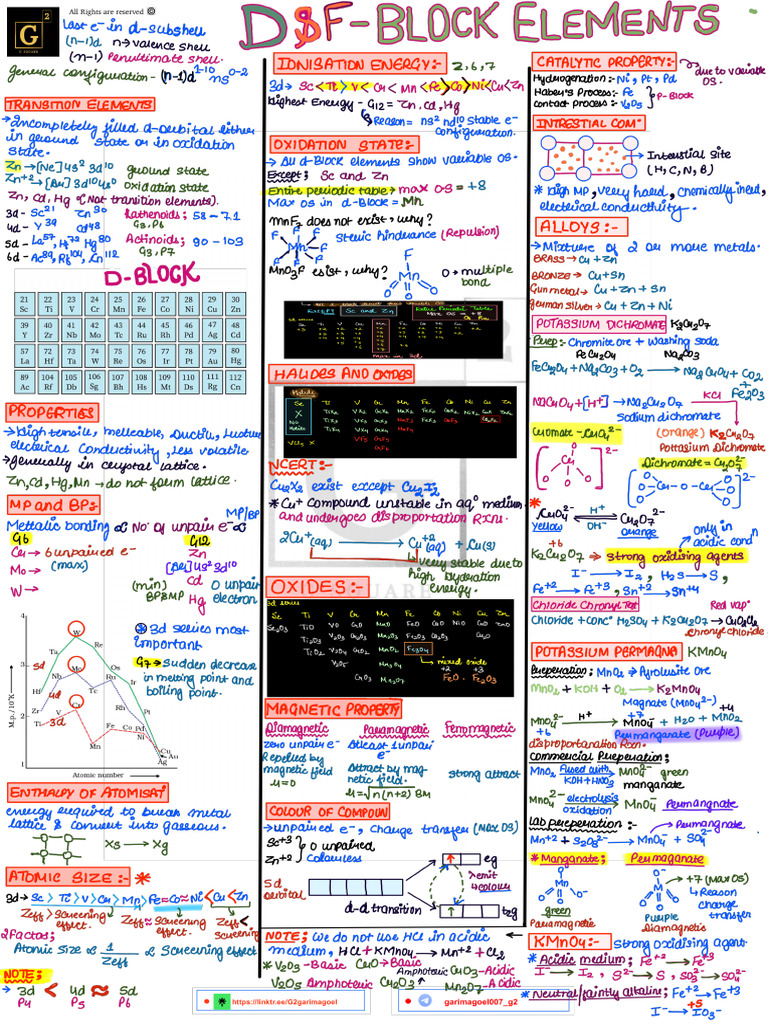 All Rights are reserved ©
D & F-BLOCK ELEMENTS
G
2
G SQUARE
Last e⁻ in d-subshell
(n-1)d n→ valence shell
(n-1) Penultimate shell.
general configuration - (n-1)d¹⁻¹⁰ ns⁰⁻²
TRANSITION ELEMENTS
→ Incompletely filled d-orbital either
in ground state or in oxidation
state.
Zn → [Ne] 4s² 3d¹⁰ ground state
Zn⁺² → [Ne] 3d¹⁰ 4s⁰ oxidation state
Zn, Cd, Hg (Not transition elements).
3d - Sc²¹ Zn³⁰ Lathenoids; 58-71
4d - Y³⁹ Cd⁴⁸ G3, P6
5d - La⁵⁷, Hf⁷² Hg⁸⁰ Actinoids; 90-103
6d - Ac⁸⁹, Rf¹⁰⁴, Cn¹¹² G3, P7
D-BLOCK
21 22 23 24 25 26 27 28 29 30
Sc Ti V Cr Mn Fe Co Ni Cu Zn
39 40 41 42 43 44 45 46 47 48
Y Zr Nb Mo Tc Ru Rh Pd Ag Cd
57 72 73 74 75 76 77 78 79 80
La Hf Ta W Re Os Ir Pt Au Hg
89 104 105 106 107 108 109 110 111 112
Ac Rf Db Sg Bh Hs Mt Ds Rg Cn
PROPERTIES
→ High tensile, melleable, Ductile, Lusture
electrical Conductivity, Less volatile
→ generally in crystal lattice.
Zn, Cd, Hg, Mn → do not form lattice.
MP and BP:
MP/BP
Metallic bonding ∝ No. of unpair e⁻ ∝
G6 G12
Cr → 6 unpaired e⁻ Zn
Mo → (max) [Ar] 4s² 3d¹⁰
W → (min) Cd 0 unpair
BP&MP Hg electron
* 3d series most
important
G7 → sudden decrease
in melting point and
boiling point.
M.p./10³K
4
3
2
1
W
Re
Ta
5d
Mo
Os
Nb
Ru
Ir
Hf
4d
Tc
Rh
Pt
Zr
V
Cr
Ti
3d
Fe
Co
Pd
Ni
Mn
Cu
Au
Ag
Atomic number
ENTHALPY OF ATOMISATI
energy required to break metal
lattice & convert into gaseous.
Xs → Xg
ATOMIC SIZE :- *
3d → Sc > Ti > V > Cr > Mn > Fe ≈ Co ≈ Ni < Cu < Zn
Zeff > Screening effect. Zeff ≈ Screening effect Zeff < Screening effect
2 Factos;
Atomic size ∝ 1/Zeff ∝ Screening effect
NOTE;
→ 3d < 4d ≈ 5d
P4 P5 P6
IONISATION ENERGY:- 2, 6, 7
3d → Sc < Ti > V < Cr < Mn < Fe > Co > Ni < Cu < Zn
Highest Energy - G12 = Zn, Cd, Hg
Reason = ns² nd¹⁰ stable e⁻
configuration.
OXIDATION STATE:-
→ All d-Block elements show variable OS.
Except; Sc and Zn
Entire periodic table; max OS = +8
Max OS in d-Block = Mn
MnF₇ does not exist, why?
F F F F F F Mn
Steric hindrance (Repulsion)
MnO₃F exist, why?
F
Mn
O O O
O → multiple
bond
EXCEPT Sc and Zn
Entire Periodic Table
Max OS = +8
Sc Ti V Cr Mn Fe Co Ni Cu Zn
HALIDES AND OXIDES
Halide
Sc Ti V Cr Mn Fe Co Ni Cu Zn
NCERT:-
Cu₂X₂ exist except Cu₂I₂
* Cu⁺ compound unstable in aqⁿ medium
and undergoes disproportation Rxn.
2Cu⁺(aq) → Cu⁺²(aq) + Cu(s)
very stable due to
high hydration
energy.
OXIDES:-
3d series
Sc Ti V Cr Mn Fe Co Ni Cu Zn
Fe₃O₄
mixed oxide
+2 +3
FeO · Fe₂O₃
MAGNETIC PROPERTY
Diamagnetic Paramagnetic Ferromagnetic
zero unpair e⁻ Atleast 1 unpair e⁻
Repelled by magnetic field Attract by magnetic field. strong attract
μ=0 μ=√n(n+2) BM
COLOUR OF COMPOUN
→ unpaired e⁻, change transfer (Max OS)
Sc⁺³ Zn⁺² } 0 unpaired
Colourless
5d
orbital
d-d transition
eg
emit
colour
t₂g
NOTE; we do not use HCl in acidic
medium, HCl + KMnO₄ → Mn⁺² + Cl₂
* V₂O₃ - Basic CrO → Basic
V₂O₅ Amphoteric Cr₂O₃ Amphoteric CrO₃ - Acidic
Mn₂O₇ - Acidic
https://linktr.ee/G2garimagoel
garimagoel007_g2
CATALYTIC PROPERTY:- due to variable OS.
Hydrogenation:- Ni, Pt, Pd
Haber's Process:- Fe
Contact process:- V₂O₅
P-Block
INTRESTIAL COM
Interstial site
(H, C, N, B)
* High MP, very hard, chemically inert,
electrical conductivity.
ALLOYS:-
→ Mixture of 2 or more metals.
BRASS → Cu + Zn
BRONZE → Cu + Sn
Gunmetal → Cu + Zn + Sn
german silver → Cu + Zn + Ni
POTASSIUM DICHROMATE K₂Cr₂O₇
Prep:- Chromite ore + Washing soda
FeCr₂O₄ Na₂CO₃
FeCr₂O₄ + Na₂CO₃ + O₂ → Na₂CrO₄ + CO₂
+ Fe₂O₃
NaCrO₄ + [H⁺] → Na₂Cr₂O₇ KCl
Sodium dichromate
Cromate - CrO₄²⁻ (orange) K₂Cr₂O₇
Pottasium Dichromate
Dichromate = Cr₂O₇²⁻
* CrO₄²⁻ H⁺ OH⁻ Cr₂O₇²⁻
yellow orange
only in
acidic condⁿ
+6
K₂Cr₂O₇ → strong oxidising agents
I⁻ → I₂, H₂S → S,
Fe⁺² → Fe⁺³, Sn⁺² → Sn⁺⁴
Chloride Chromyl Test Red vap.
Chloride + conc. H₂SO₄ + K₂Cr₂O₇ → CrO₂Cl₂
chromyl chloride
POTASSIUM PERMAGNA KMnO₄
Preperation; MnO₂ → Pyrolusite ore
MnO₂ + KOH + O₂ → K₂MnO₄
Magnate (MnO₄²⁻)
MnO₄²⁻ H⁺ → MnO₄⁻ + H₂O + MnO₂
+6 +7 +4
Permanganate (Purple)
disproportanation Rxn.
Commercial Preperation;
MnO₂ Fused with KOH+KNO₃ → MnO₄²⁻ green
manganate
MnO₄²⁻ electrolysis oxidation → MnO₄⁻ Permangnate
LAB preperation:- Permangnate
Mn⁺² + S₂O₈²⁻ → MnO₄⁻ + SO₄²⁻
* Manganate; Permaganate
+7 (Max OS)
Reason
charge
transfer
green
Paramagnetic
Purple
Diamagnetic
KMnO₄:- strong oxidising agent
* Acidic medium; Fe⁺² → Fe⁺³
I⁻ → I₂, S²⁻ → S, SO₃²⁻ → SO₄²⁻
* Neutral/faintly alkaline; Fe⁺² → Fe⁺³
I⁻ → IO₃⁻
+5